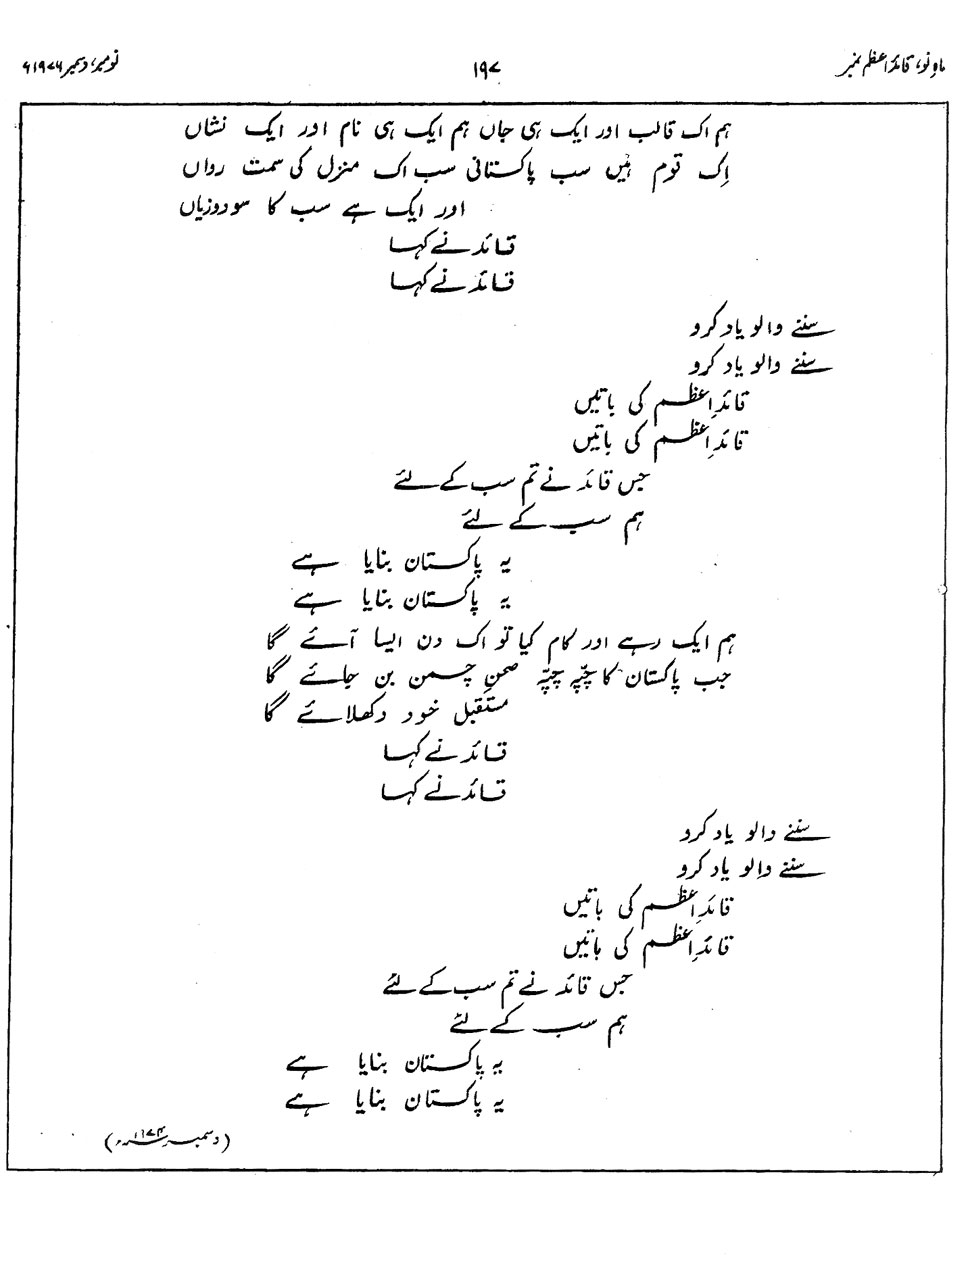 ماہِ نو، قائدِاعظم نمبر
۱۹۷
نومبر، دسمبر ۱۹۷۶ء
ہم اک قالب اور ایک ہی جاں ہم ایک ہی نام اور ایک نشاں
اِک قوم ہیں سب پاکستانی سب اک منزل کی سمت رواں
اور ایک ہے سب کا سودوزیاں
قائد نے کہا
قائد نے کہا
سننے والو یاد کرو
سننے والو یاد کرو
قائدِاعظم کی باتیں
قائدِاعظم کی باتیں
جس قائد نے تم سب کے لئے
ہم سب کے لئے
یہ پاکستان بنایا ہے
یہ پاکستان بنایا ہے
ہم ایک رہے اور کام کیا تو اک دن ایسا آئے گا
جب پاکستان کا چپّہ چپّہ صحنِ چمن بن جائے گا
مستقبل خود دکھلائے گا
قائد نے کہا
قائد نے کہا
سننے والو یاد کرو
سننے والو یاد کرو
قائدِاعظم کی باتیں
قائدِاعظم کی باتیں
جس قائد نے تم سب کے لئے
ہم سب کے لئے
یہ پاکستان بنایا ہے
یہ پاکستان بنایا ہے
(دسمبر